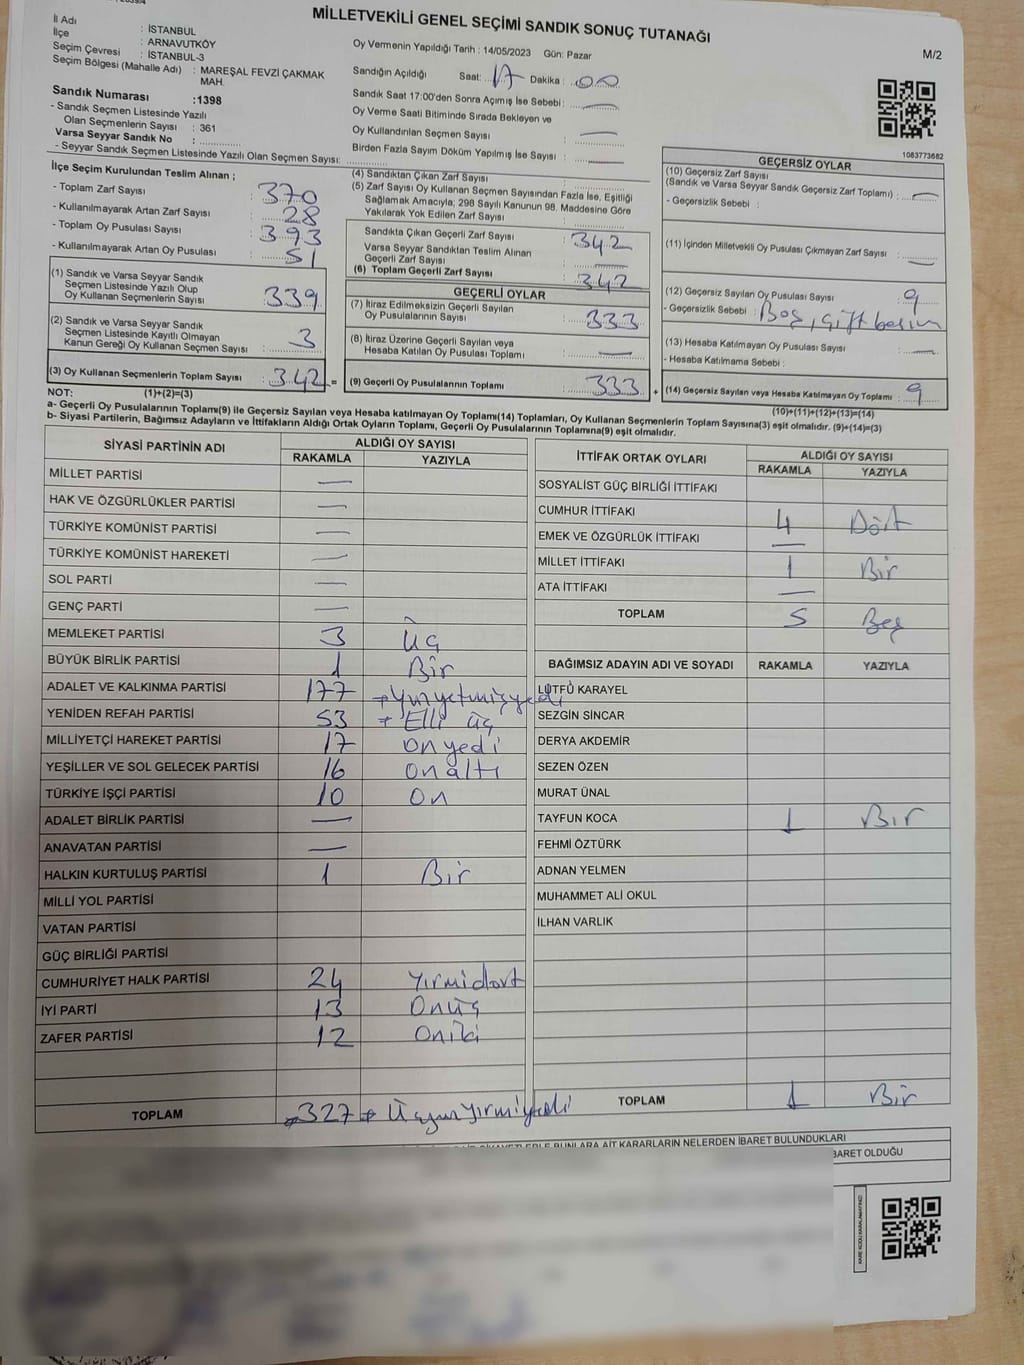 MİLLETVEKİLİ GENEL SEÇİMİ SANDIK SONUÇ TUTANAĞI
M/2
İl Adı : İSTANBUL
İlçe : ARNAVUTKÖY
Seçim Çevresi : İSTANBUL-3
Seçim Bölgesi (Mahalle Adı) : MAREŞAL FEVZİ ÇAKMAK
MAH.
Sandık Numarası :1398
- Sandık Seçmen Listesinde Yazılı
Olan Seçmenlerin Sayısı : 361
Varsa Seyyar Sandık No :
- Seyyar Sandık Seçmen Listesinde Yazılı Olan Seçmen Sayısı:
Oy Vermenin Yapıldığı Tarih : 14/05/2023 Gün: Pazar
Sandığın Açıldığı Saat: 17 Dakika : 00
Sandık Saat 17:00'den Sonra Açılmış İse Sebebi: —
Oy Verme Saati Bitiminde Sırada Bekleyen ve
Oy Kullandırılan Seçmen Sayısı : —
Birden Fazla Sayım Döküm Yapılmış İse Sayısı : —
1083773682
İlçe Seçim Kurulundan Teslim Alınan ;
- Toplam Zarf Sayısı : 370
- Kullanılmayarak Artan Zarf Sayısı : 28
- Toplam Oy Pusulası Sayısı : 393
- Kullanılmayarak Artan Oy Pusulası : 51
(1) Sandık ve Varsa Seyyar Sandık
Seçmen Listesinde Yazılı Olup
Oy Kullanan Seçmenlerin Sayısı : 339
(2) Sandık ve Varsa Seyyar Sandık
Seçmen Listesinde Kayıtlı Olmayan
Kanun Gereği Oy Kullanan Seçmen Sayısı : 3
(3) Oy Kullanan Seçmenlerin Toplam Sayısı : 342 =
(4) Sandıktan Çıkan Zarf Sayısı :
(5) Zarf Sayısı Oy Kullanan Seçmen Sayısından Fazla İse, Eşitliği
Sağlamak Amacıyla; 298 Sayılı Kanunun 98. Maddesine Göre
Yakılarak Yok Edilen Zarf Sayısı :
Sandıkta Çıkan Geçerli Zarf Sayısı : 342
Varsa Seyyar Sandıktan Teslim Alınan
Geçerli Zarf Sayısı : —
(6) Toplam Geçerli Zarf Sayısı : 342
GEÇERLİ OYLAR
(7) İtiraz Edilmeksizin Geçerli Sayılan
Oy Pusulalarının Sayısı : 333
(8) İtiraz Üzerine Geçerli Sayılan veya
Hesaba Katılan Oy Pusulası Toplamı : —
(9) Geçerli Oy Pusulalarının Toplamı : 333 +
GEÇERSİZ OYLAR
(10) Geçersiz Zarf Sayısı
(Sandık ve Varsa Seyyar Sandık Geçersiz Zarf Toplamı) : —
- Geçersizlik Sebebi :
(11) İçinden Milletvekili Oy Pusulası Çıkmayan Zarf Sayısı : —
(12) Geçersiz Sayılan Oy Pusulası Sayısı : 9
- Geçersizlik Sebebi : Boş, çift basım
(13) Hesaba Katılmayan Oy Pusulası Sayısı : —
- Hesaba Katılmama Sebebi :
(14) Geçersiz Sayılan veya Hesaba Katılmayan Oy Toplamı : 9
NOT: (1)+(2)=(3)
(10)+(11)+(12)+(13)=(14)
a- Geçerli Oy Pusulalarının Toplamı(9) ile Geçersiz Sayılan veya Hesaba katılmayan Oy Toplamı(14) Toplamları, Oy Kullanan Seçmenlerin Toplam Sayısına(3) eşit olmalıdır. (9)+(14)=(3)
b- Siyasi Partilerin, Bağımsız Adayların ve İttifakların Aldığı Ortak Oyların Toplamı, Geçerli Oy Pusulalarının Toplamına(9) eşit olmalıdır.
SİYASİ PARTİNİN ADI ALDIĞI OY SAYISI
RAKAMLA YAZIYLA
MİLLET PARTİSİ —
HAK VE ÖZGÜRLÜKLER PARTİSİ —
TÜRKİYE KOMÜNİST PARTİSİ —
TÜRKİYE KOMÜNİST HAREKETİ —
SOL PARTİ —
GENÇ PARTİ —
MEMLEKET PARTİSİ 3 Üç
BÜYÜK BİRLİK PARTİSİ 1 Bir
ADALET VE KALKINMA PARTİSİ 177 Yüzyetmişyedi
YENİDEN REFAH PARTİSİ 53 Elli üç
MİLLİYETÇİ HAREKET PARTİSİ 17 onyedi
YEŞİLLER VE SOL GELECEK PARTİSİ 16 onaltı
TÜRKİYE İŞÇİ PARTİSİ 10 On
ADALET BİRLİK PARTİSİ —
ANAVATAN PARTİSİ —
HALKIN KURTULUŞ PARTİSİ 1 Bir
MİLLİ YOL PARTİSİ
VATAN PARTİSİ
GÜÇ BİRLİĞİ PARTİSİ
CUMHURİYET HALK PARTİSİ 24 Yirmidört
İYİ PARTİ 13 Onüç
ZAFER PARTİSİ 12 Oniki
TOPLAM 327 Üçyüzyirmiyedi
İTTİFAK ORTAK OYLARI ALDIĞI OY SAYISI
RAKAMLA YAZIYLA
SOSYALİST GÜÇ BİRLİĞİ İTTİFAKI
CUMHUR İTTİFAKI 4 Dört
EMEK VE ÖZGÜRLÜK İTTİFAKI —
MİLLET İTTİFAKI 1 Bir
ATA İTTİFAKI —
TOPLAM 5 Beş
BAĞIMSIZ ADAYIN ADI VE SOYADI RAKAMLA YAZIYLA
LÜTFÜ KARAYEL
SEZGİN SİNCAR
DERYA AKDEMİR
SEZEN ÖZEN
MURAT ÜNAL
TAYFUN KOCA 1 Bir
FEHMİ ÖZTÜRK
ADNAN YELMEN
MUHAMMET ALİ OKUL
İLHAN VARLIK
TOPLAM 1 Bir
BUNLARA AİT KARARLARIN NELERDEN İBARET BULUNDUKLARI
BARET OLDUĞU